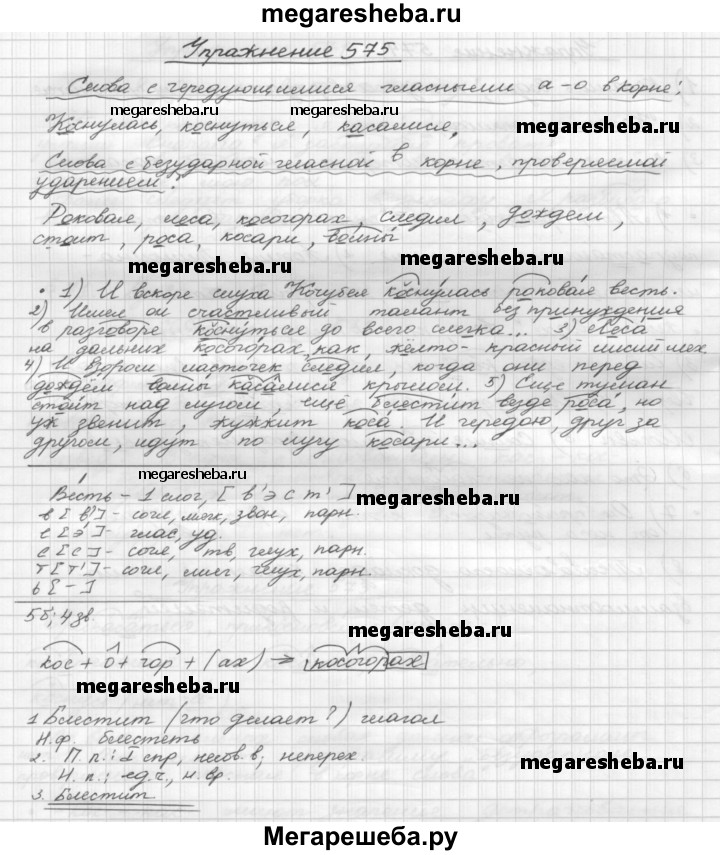 megaresheba.ru
Упражнение 575
Слова с чередующимися гласными а-о в корне:
megaresheba.ru
megaresheba.ru
Коснулась, коснуться, касались.
Слова с безударной гласной в корне, проверяемой
ударением:
megaresheba.ru
Роковая, леса, косогорах, следил, дождем,
стоит, роса, косари, войны
megaresheba.ru
megaresheba.ru
• 1) И вскоре слуха Кочубея коснулась роковая весть.
2) Имел он счастливый талант без принуждения
в разговоре коснуться до всего слегка... 3) Леса
на дальних косогорах, как, жёлто-красный лисий мех.
4) И ворон ласточек следил, когда они перед
дождём войны касались крылом. 5) Еще туман
стоит над лугом, ещё блестит везде роса, но
уж звенит, жужжит коса. И чередою, друг за
другом, идут по лугу косари...
megaresheba.ru
Весть - 1 слог, [в'э с т']
megaresheba.ru
в [в'] - согл, мягк, звон, парн.
е [э'] - глас, уд.
с [с] - согл, тв, глух, парн.
т [т'] - согл, мягк, глух, парн.
ь [-]
5б; 4 зв.
megaresheba.ru
кос + о + гор + (ах) → косогорах
megaresheba.ru
1 Блестит (что делает?) глагол
Н.ф. блестеть
2. П.п.: I спр, несов. в; неперех.
megaresheba.ru
Н.п.; ед.ч., н.вр.
3. Блестит
Мегарешеба.ру